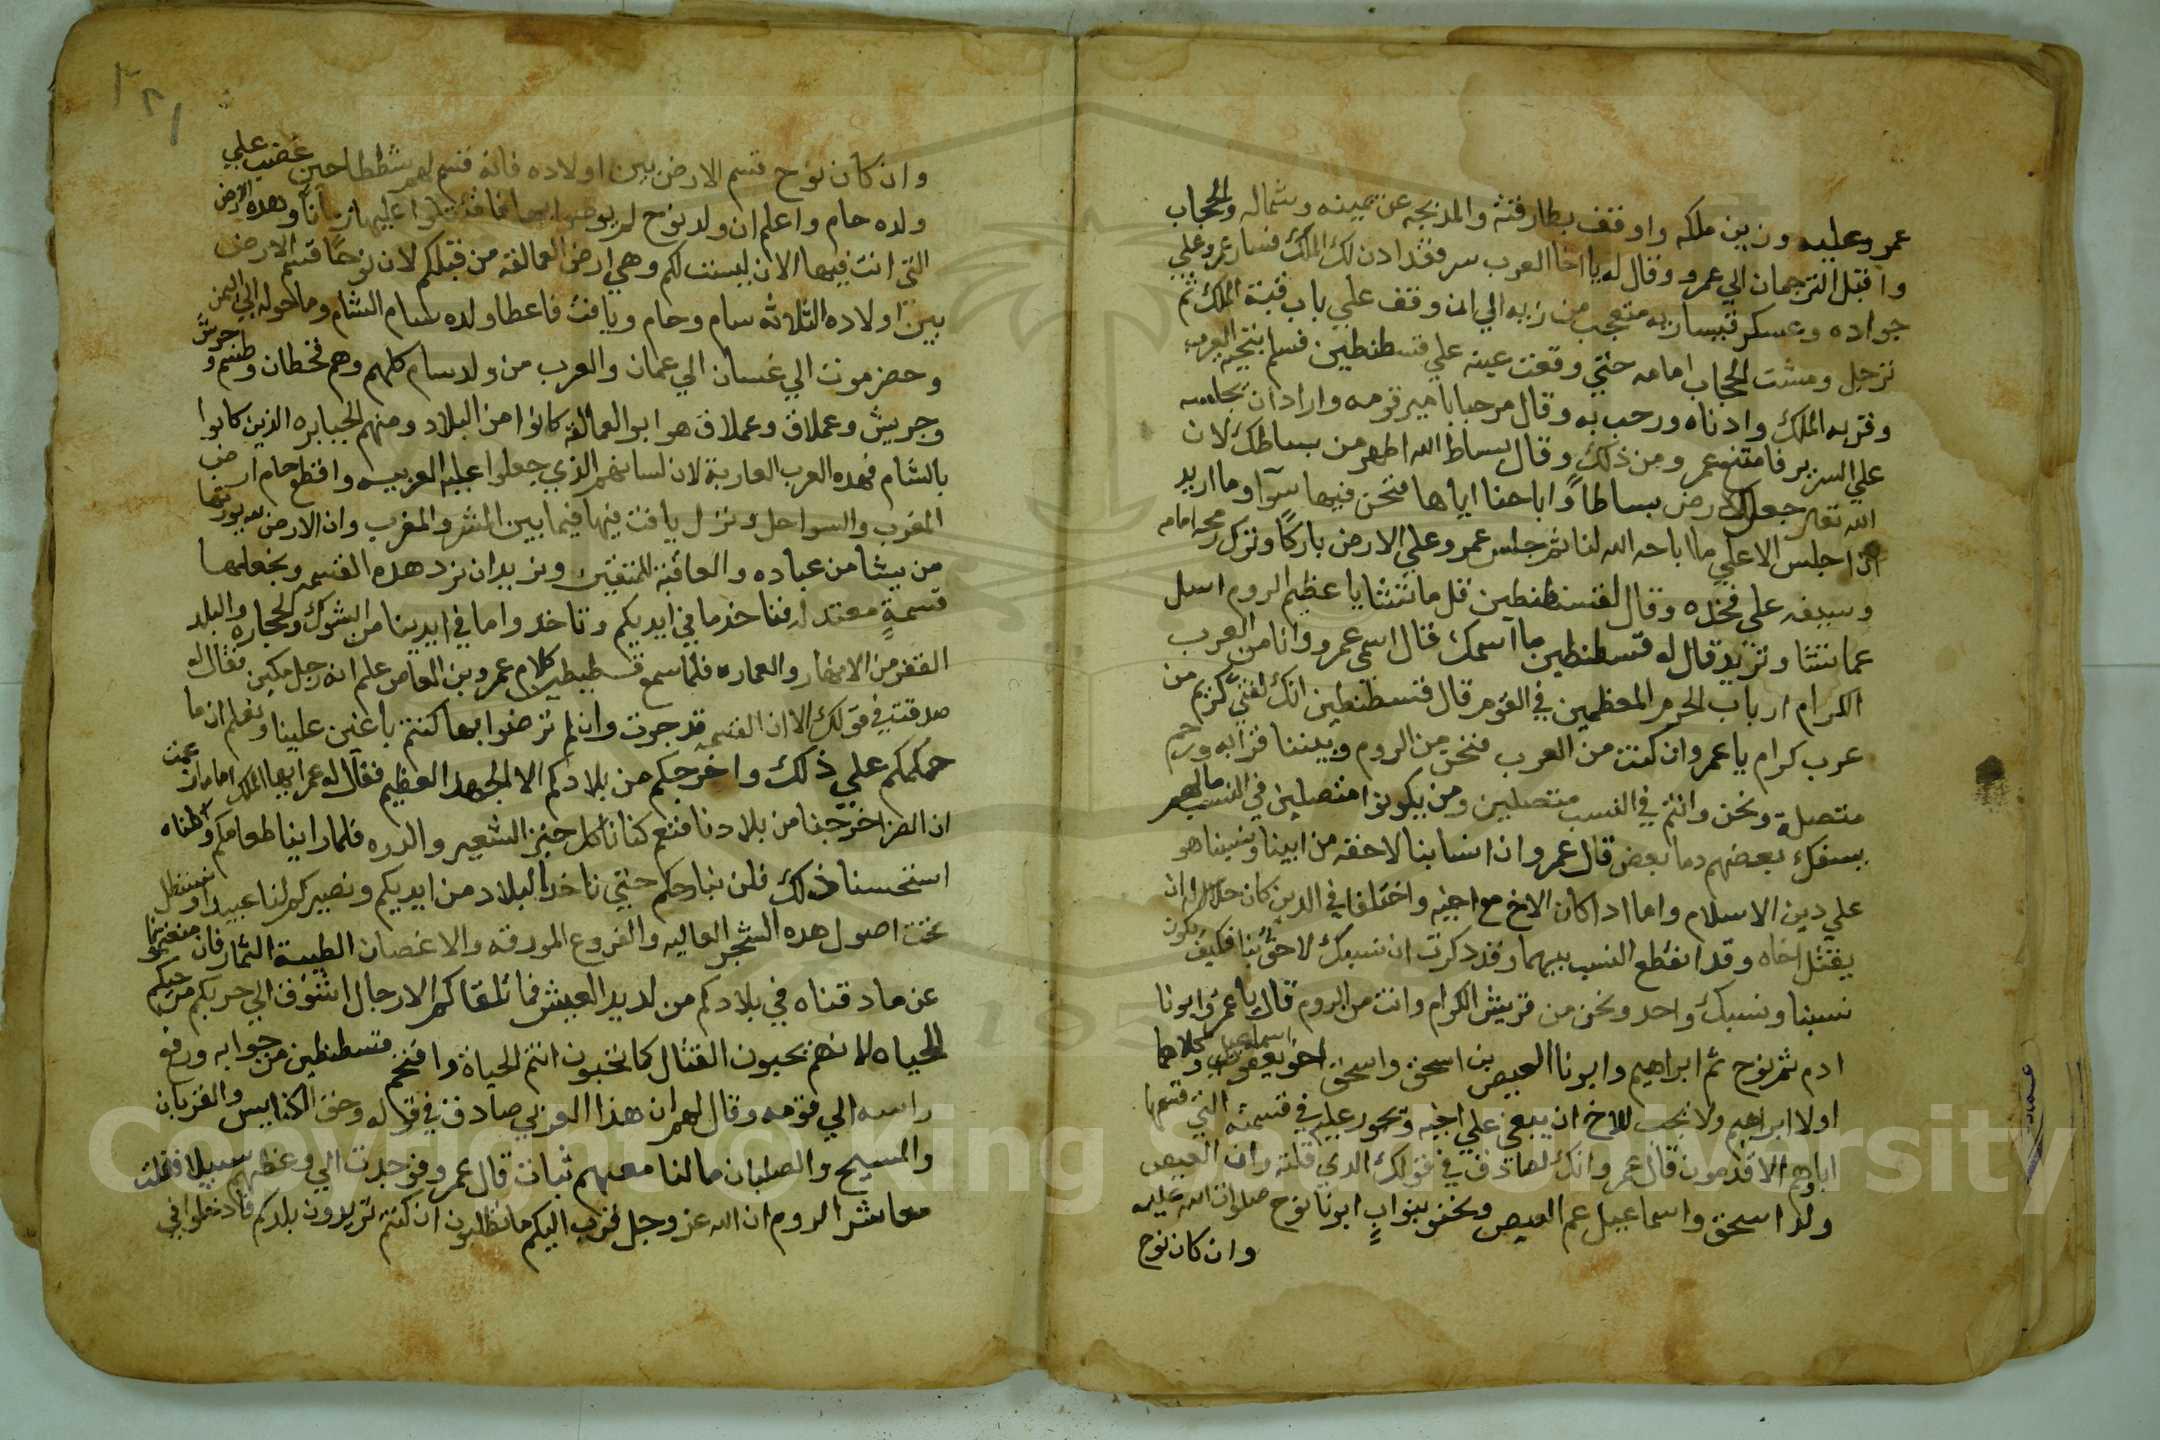 عمرو عليه وزين ملكه واوقف بطارقته والمدبجه عن يمينه وشماله والحجاب
واقبل الترجمان الي عمرو وقال له يا اخا العرب سر فقد ادن لك الملك فسار عمرو علي
جواده وعسكر قيساريه متعجب من زيه الي ان وقف علي باب قبة الملك ثم
نزجل ومشت الحجاب امامه حتي وقعت عينه علي قسطنطين فسلم بتحية العرب
وقربه الملك وادناه ورحب به وقال مرحبا بامير قومه واراد ان يجلسه
علي السرير فامتنع عمرو من ذلك وقال بساط الله اطهر من بساطك لان
الله تعالي جعل الارض بساطا واباحنا اياها فنحن فيها سوآ وما اريد
ان اجلس الا علي ما اباحه الله لنا ثم جلس عمرو علي الارض باركا ونزل رمحه امامه
وسيفه علي فخذه وقال لقسنطنطين قل ما تشا يا عظيم الروم اسل
عما تشا وتريد قال له قسطنطين ما آسمك قال اسمي عمرو وانا من العرب
الكرام ارباب الحرم المعظمين في القوم قال قسطنطين انك لفتي كريم من
عرب كرام يا عمرو ان كنت من العرب فنحن من الروم وبيننا قرابه ورحم
متصلة ونحن وانتم في النسب متصلين ومن يكونوا متصلين في النسب مالهم
بسفك بعضهم دما بعض قال عمرو ان انسابنا لاحقه من ابينا ونبينا هو
علي دين الاسلام واما ادا كان الاخ مع اخيه واختلفا في الدين كان حلال له ان
يقتل اخاه وقد انقطع النسب بينهما وقد دكرت ان نسبك لاحق بنا فكيف يكون
نسبنا ونسبك واحد ونحن من قريش الكرام وانت من الروم قال يا عمرو ابونا
ادم ثم نوح ثم ابراهيم وابونا العيص بن اسحق واسحق اخو اسماعيل وكلاهما
اولا ابراهيم ولا يجب للاخ ان يبغي علي اخيه ويجور عليه في قسمته التي قسمها
اباوهم الاقدمون قال عمرو انك لصادق في قولك الدي قلته وان العيص
ولد اسحق واسماعيل عم العيص ونحن بنو ابٍ ابونا نوح صلوات الله عليه
وان كان نوح
وان كان نوح قسم الارض بين اولاده فانه قسم لهم شططا حين غضب علي
ولده حام واعلم ان ولد نوح لم يرضوا بها فاقتتلوا عليها زمانا وهده الارض
التي انت فيها الان ليست لكم وهي ارض العمالقه من قبلكم لان نوحا قسم الارض
بين اولاده الثلاثه سام وحام ويافث فاعطا ولده سام الشام وما حوله الي اليمن
وحضرموت الي غسان الي عمان والعرب من ولد سام كلهم وهم قحطان وطسم
وجريش وعملاق وعملاق هو ابو العمالقة كانوا من البلاد ومنهم الجبابره الدين كانوا
بالشام فهده العرب العاربة لان لسانهم الذي جعلوا عليه العربيه واقطع حام ارض
المغرب والسواحل ونزل يافت فيها فيما بين المشرق والمغرب وان الارض لله يورثها
من يشا من عباده والعاقبة للمتقين ونريد ان نرد هده القسمه ونجعلها
قسمةٍ معتدله فناخذ ما في ايديكم وتاخدوا ما في ايدينا من الشوك والحجاره والبلد
القفر من الانهار والعماره فلما سمع قسطنطين كلام عمرو بن العاص علم انه رجل مكين فقال له
صدقت في قولك الا ان القسمه قد جرت وان لم ترضوا بها كنتم باغين علينا ونعلم ان ما
حملكم علي ذلك واخرجكم من بلادكم الا الجهد العظيم فقال له عمرو ايها الملك اما ما زعمت
ان الضر اخرجنا من بلادنا فنعم كنا ناكل خبز الشعير والدره فلما راينا طعامكم واكلناه
استحسنا ذلك فلن نبارحكم حتي ناخد البلاد من ايديكم ونصيركم لنا عبيدا ونستظل
تحت اصول هده الشجر العاليه والفروع المورقه والاغصان الطيبة الثمار فان منعتمونا
عن ما دقناه في بلادكم من لديد العيش فما تلقاكم الا رجال اشوق الي حربكم من حبكم
للحياه لانهم يحبون القتال كما تحبون انتم الحياة وافتحم قسطنطين من جوابه ورفع
راسه الي قومه وقال لهم ان هذا العربي صادق في قوله وحق الكنايس والقربان
والمسيح والصلبان ما لنا معهم ثبات قال عمرو فوجدت الي وعظهم سبيلا فقلت
معاشر الروم ان الله عز وجل قرب اليكم ما تطلبون ان كنتم تريدون بلدكم فادخلوا في
Copyright © King Saud University